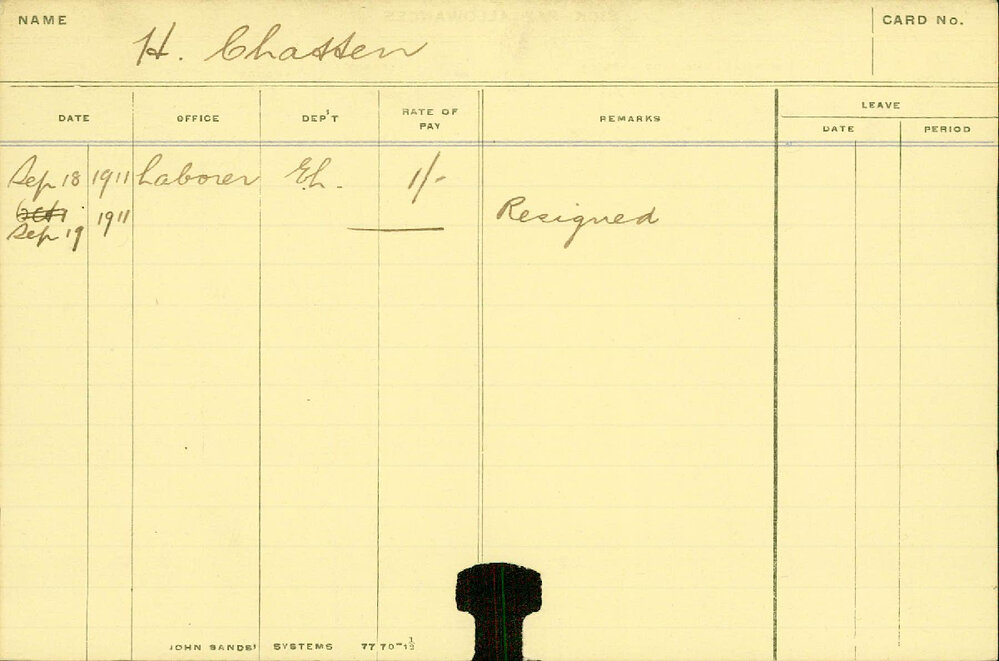 NAME
H. Chatten
CARD No.
DATE OFFICE DEP'T RATE OF PAY REMARKS LEAVE
DATE PERIOD
Sep 18 1911 Laborer Eh. 1/-
Oct 1 1911 Resigned
Sep 19
JOHN SANDS' SYSTEMS 7770